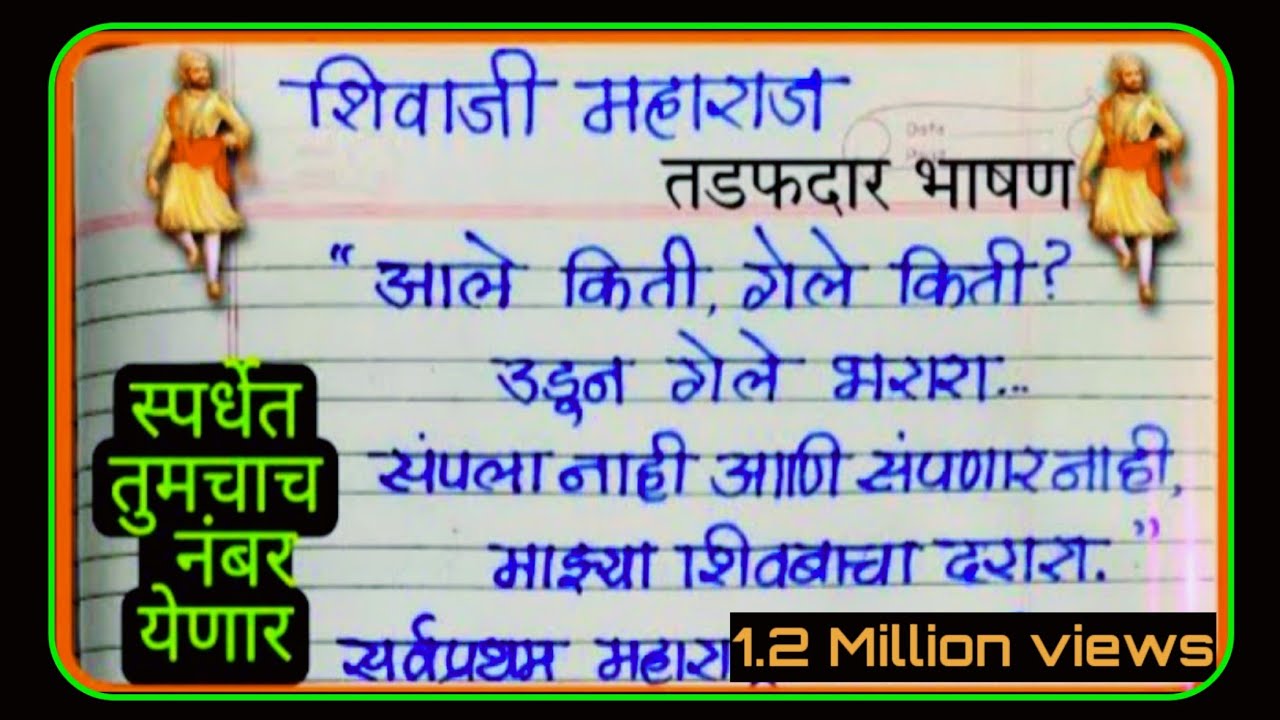 शिवाजी महाराज
Date
तडफदार भाषण
“आले किती, गेले किती?
उडून गेले भरारा...
संपला नाही आणि संपणार नाही,
माझ्या शिवबाचा दरारा.”
सर्वप्रथम
स्पर्धेत
तुमचाच
नंबर
येणार
1.2 Million views